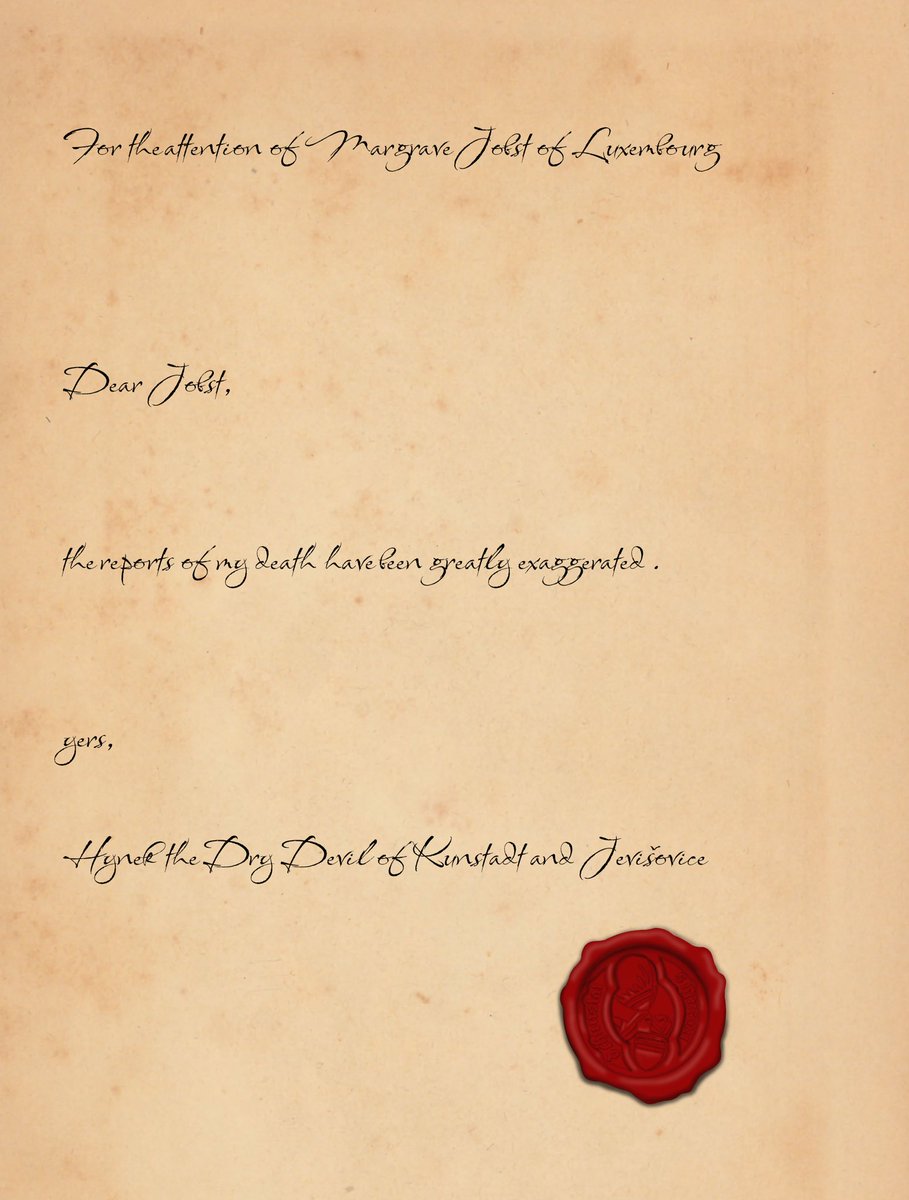 For the attention of Margrave Jobst of Luxembourg
Dear Jobst,
the reports of my death have been greatly exaggerated .
yers,
Hynek the Dry Devil of Kunstadt and Jevišovice